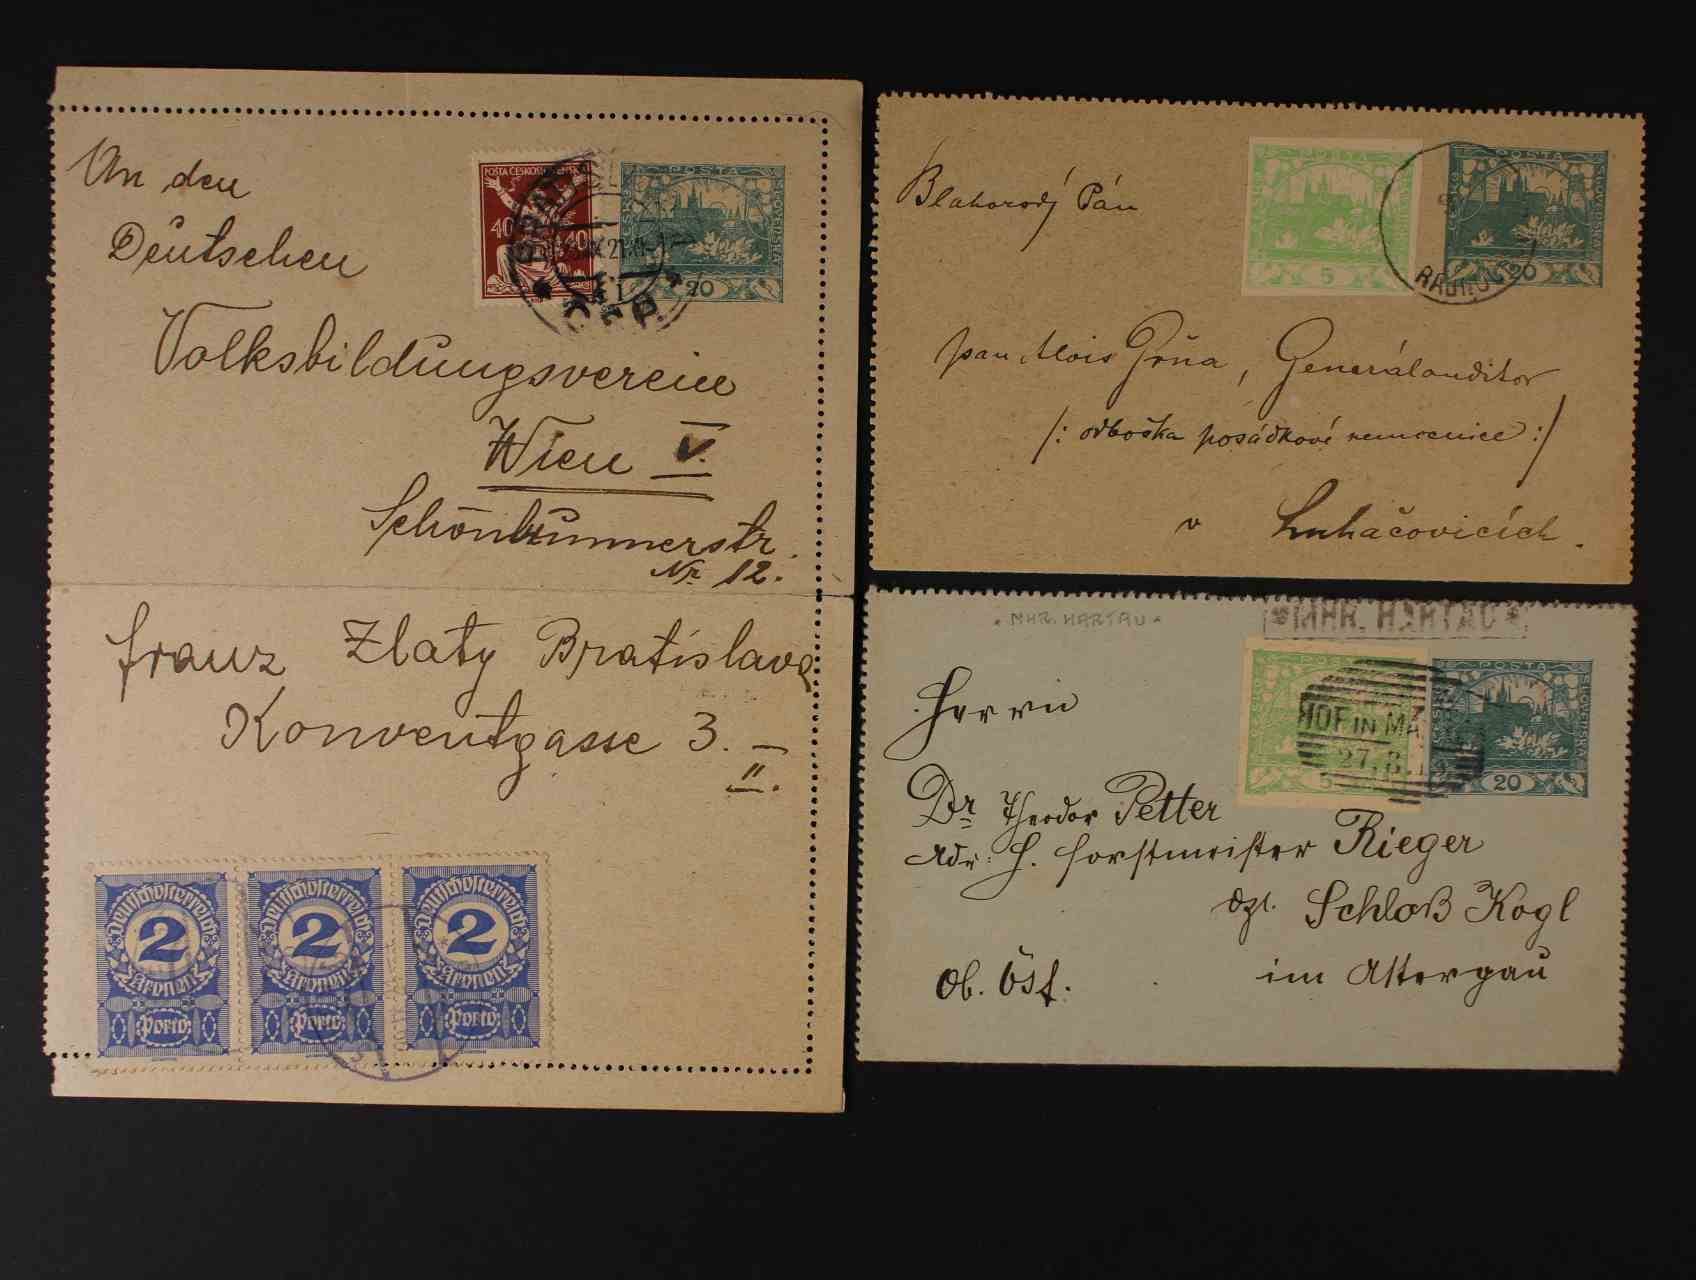 An den
Deutschen
Volksbildungsverein
Wien V.
Schönbrunnerstr.
Nr. 12.
POSTA ČESKOSLOVENSKÁ
40 40
POSTA
ČESKO SLOVENSKÁ
20
Franz Zlaty Bratislava
Konventgasse 3.
II.
Deutschösterreich
2
Kronen
Porto
Deutschösterreich
2
Kronen
Porto
Deutschösterreich
2
Kronen
Porto
Blahorodý Pán
POSTA
5
POSTA
ČESKO SLOVENSKÁ
20
pan Alois Grňa, Generálauditor
/: odbočka posádkové nemocnice :/
v Luhačovicích.
* MHR. HARTAU *
* MHR. HARTAU *
POSTA
5
POSTA
ČESKO SLOVENSKÁ
20
HOF IN MÄ
27. 8. 19
Herrn
Dr Theodor Petter
Adr: H. Forstmeister Rieger
dzt. Schloß Kogl
im Attergau
Ob. Öst.